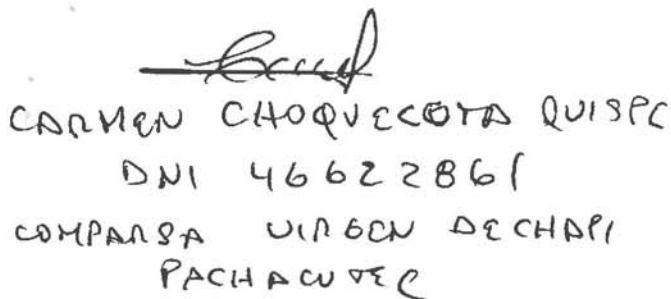 CARMEN CHOQUECOTA QUISPE
DNI 46622861
COMPARSA VIRGEN DE CHAPI
PACHACUTEC